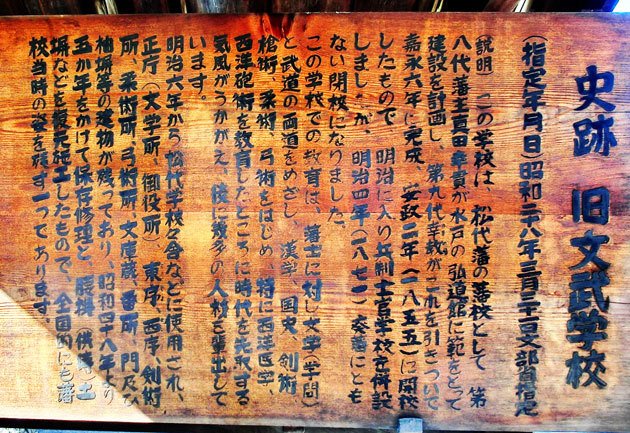 史跡 旧文武学校
(指定年月日)昭和二十八年三月三十一日文部省指定
(説明) この学校は、松代藩の藩校として、第
八代藩主真田幸貫が水戸の弘道館に範をとって
建設を計画し、第九代幸教がこれを引きついで
嘉永六年に完成、安政二年(一八五五)に開校
したもので、明治に入り兵制士官学校を併設
しましたが、明治四年(一八七一)廃藩にとも
ない閉校になりました。
この学校での教育は、藩士に対し文学(学問)
と武道の両道をめざし、漢学、国史、剣術
槍術、柔術、弓術をはじめ、特に西洋医学、
西洋砲術を教育したところに時代を先取する
気風がうかがえ、後に幾多の人材を輩出して
います。
明治六年から松代学校々舎などに使用され、
正庁(文学所、御役所)、東序、西序、剣術
所、柔術所、弓術所、文庫蔵、番所、門及び
袖塀等の建物が残っており、昭和四十八年より
五か年をかけて保存修理と、腰掛(供待)、土
塀などを復元施工したもので、全国的にも藩
校当時の姿を残す一つであります。